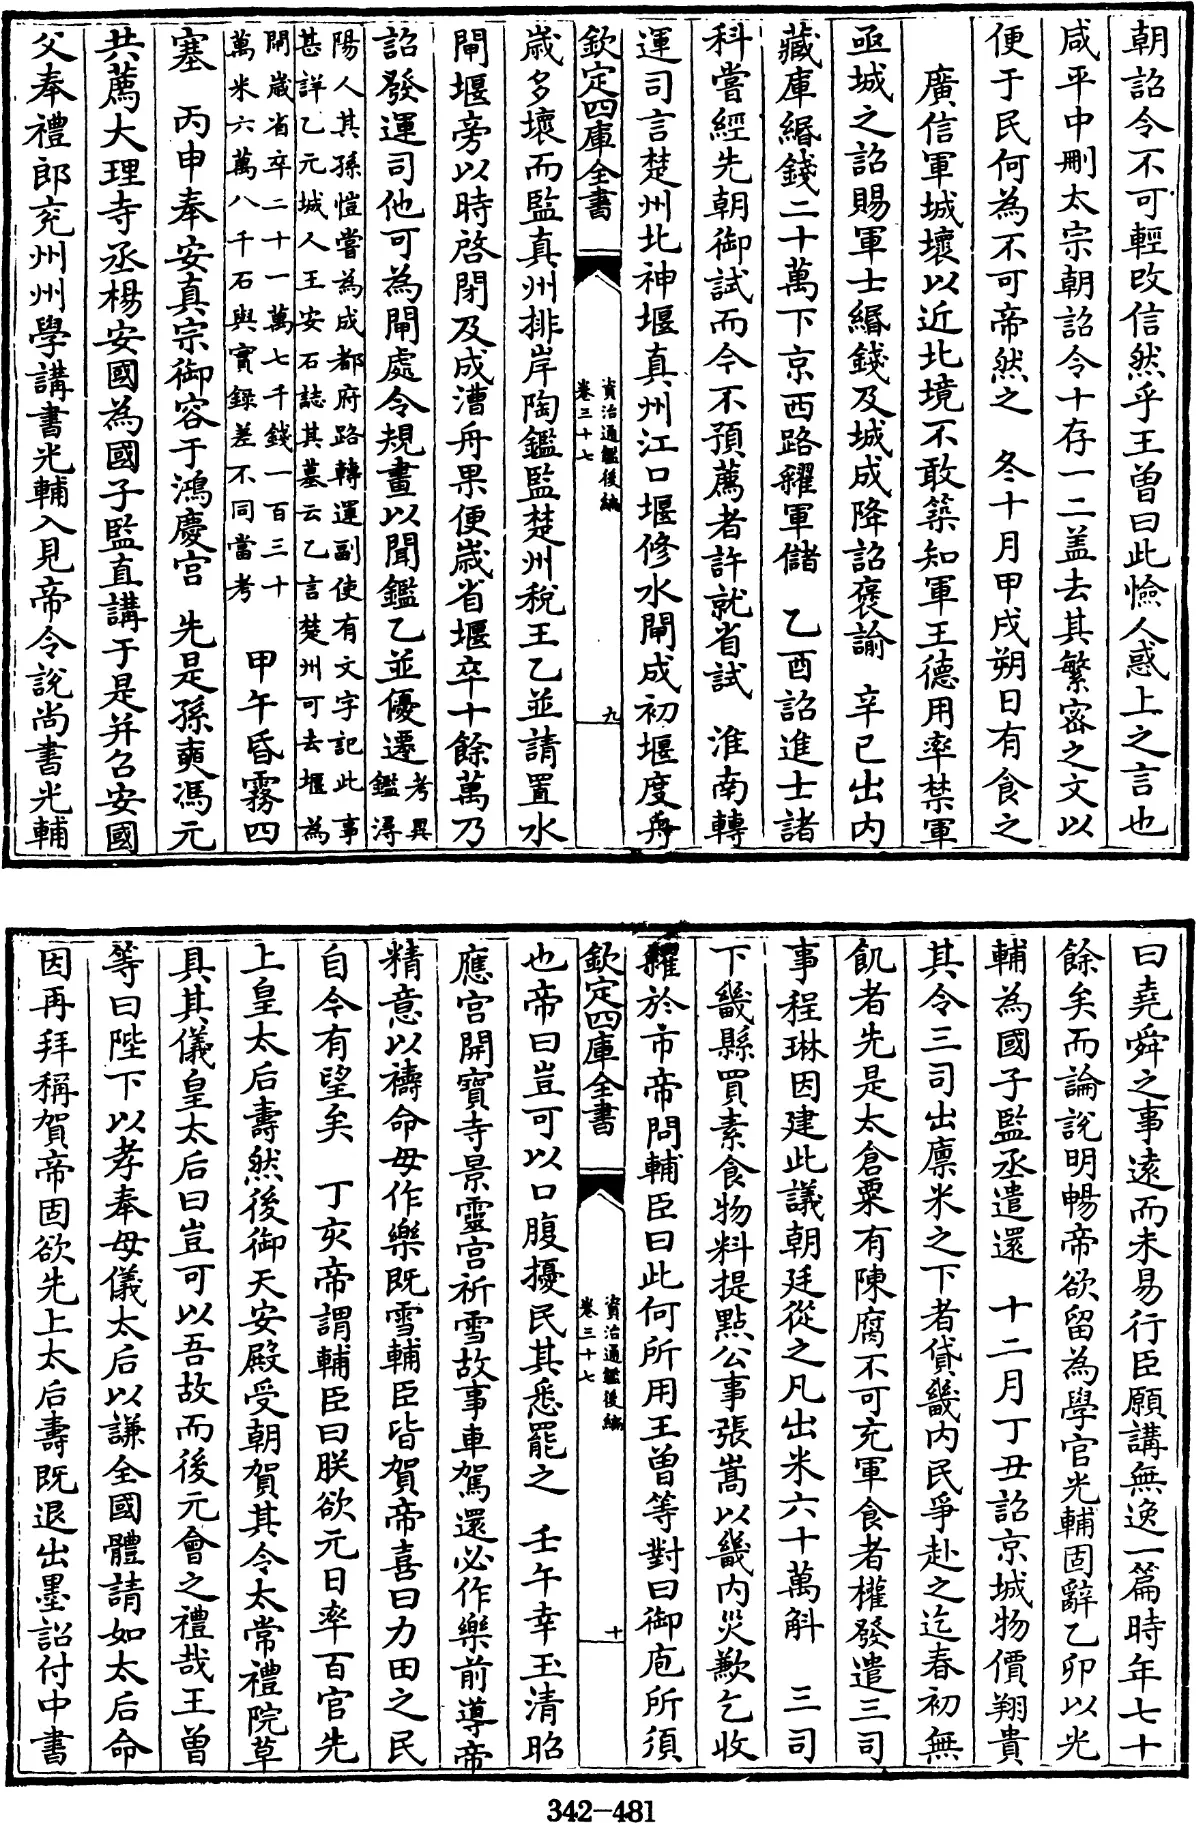 朝詔令不可輕改信然乎王曾曰此憸人惑上之言也
咸平中刪太宗朝詔令十存一二盖去其繁密之文以
便于民何為不可帝然之　冬十月甲戌朔日有食之
廣信軍城壞以近北境不敢築知軍王德用率禁軍
亟城之詔賜軍士緡錢及城成降詔褒諭　辛巳出内
藏庫緡錢二十萬下京西路糴軍儲　乙酉詔進士諸
科嘗經先朝御試而今不預薦者許就省試　淮南轉
運司言楚州北神堰真州江口堰修水閘成初堰度舟
欽定四庫全書
資治通鑑後編
卷三十七
九
歳多壞而監真州排岸陶鑑監楚州稅王乙並請置水
閘堰旁以時啓閉及成漕舟果便歳省堰卒十餘萬乃
詔發運司他可為閘處令規畫以聞鑑乙並優遷考異
鑑潯
陽人其孫愷嘗為成都府路轉運副使有文字記此事
甚詳乙元城人王安石誌其墓云乙言楚州可去堰為
閘歳省卒二十一萬七千錢一百三十
萬米六萬八千石與實録差不同當考　甲午昏霧四
塞　丙申奉安真宗御容于鴻慶宫　先是孫奭馮元
共薦大理寺丞楊安國為國子監直講于是并召安國
父奉禮郎兖州州學講書光輔入見帝令說尚書光輔
曰堯舜之事遠而未易行臣願講無逸一篇時年七十
餘矣而論說明暢帝欲留為學官光輔固辭乙卯以光
輔為國子監丞遣還　十二月丁丑詔京城物價翔貴
其令三司出廪米之下者貸畿内民爭赴之迄春初無
飢者先是太倉粟有陳腐不可充軍食者權發遣三司
事程琳因建此議朝廷從之凡出米六十萬斛　三司
下畿縣買素食物料提點公事張嵩以畿内災歉乞收
糴於市帝問輔臣曰此何所用王曾等對曰御庖所須
欽定四庫全書
資治通鑑後編
卷三十七
十
也帝曰豈可以口腹擾民其悉罷之　壬午幸玉清昭
應宫開寶寺景靈宫祈雪故事車駕還必作樂前導帝
精意以禱命毋作樂既雪輔臣皆賀帝喜曰力田之民
自今有望矣　丁亥帝謂輔臣曰朕欲元日率百官先
上皇太后壽然後御天安殿受朝賀其令太常禮院草
具其儀皇太后曰豈可以吾故而後元會之禮哉王曾
等曰陛下以孝奉母儀太后以謙全國體請如太后命
因再拜稱賀帝固欲先上太后壽既退出墨詔付中書
342-481